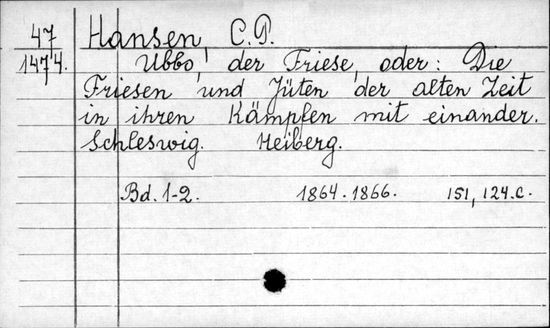 47 Hansen, C.P.
1474. Ubbo, der Friese, oder: Die
Friesen und Jüten der alten Zeit
in ihren Kämpfen mit einander.
Schleswig. Heiberg.
Bd. 1-2. 1864-1866. 151, 124.c.